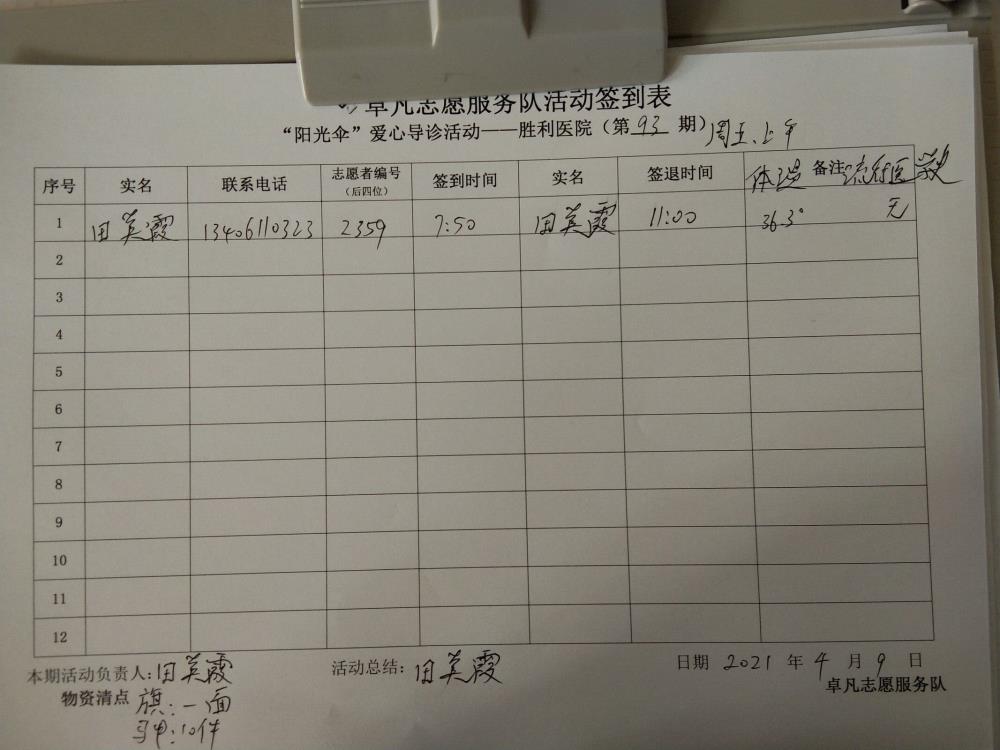 卓凡志愿服务队活动签到表
“阳光伞”爱心导诊活动——胜利医院（第93期）周五上午
序号 实名 联系电话 志愿者编号（后四位） 签到时间 实名 签退时间 体温 备注 流行医学史
1 田英霞 13406110323 2359 7:50 田英霞 11:00 36.3° 无
2
3
4
5
6
7
8
9
10
11
12
本期活动负责人:田英霞 活动总结:田英霞 日期 2021 年 4 月 9 日
卓凡志愿服务队
物资清点 旗:一面
马甲:10件